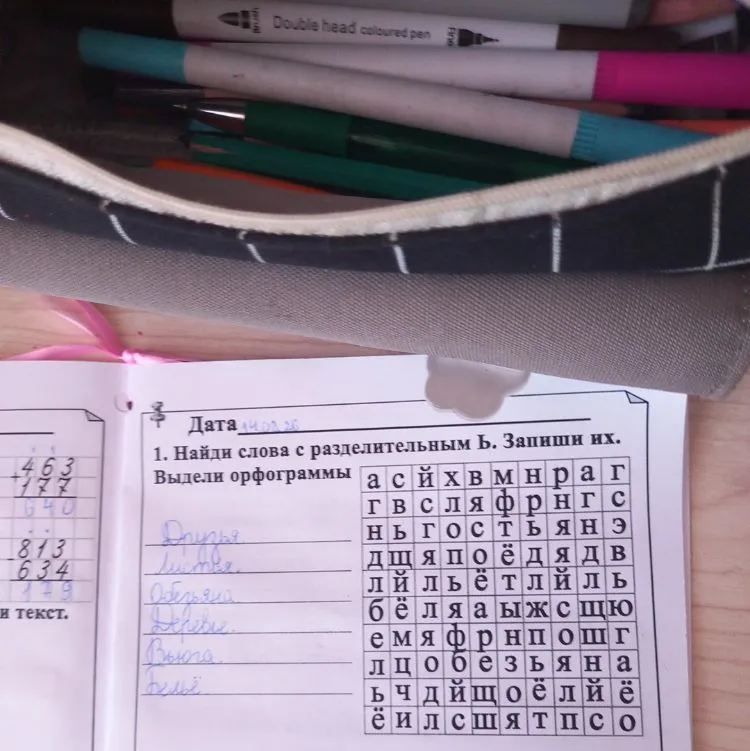 Double head coloured pen
463
+177
640
813
-634
179
и текст.
Дата 14.02.26
1. Найди слова с разделительным Ь. Запиши их.
Выдели орфограммы
Друзья
Листья.
Обезьяна
Деревье.
Вьюга.
Бельё
а с й х в м н р а г
г в с л я ф р н г с
н ь г о с т ь я н э
д щ я п о ё д я д в
л й л ь ё т л й л ь
б ё л я а ы ж с щ ю
е м я ф р н п о ш г
л ц о б е з ь я н а
ь ч д й щ о ё л й ё
ё и л с ш я т п с о